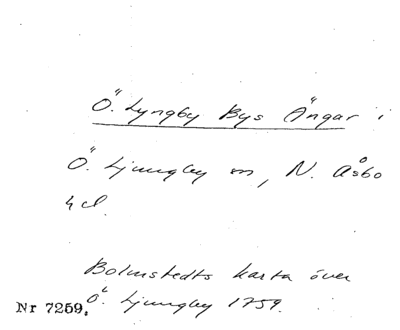 Ö. Lyngby Bys Ängar i
Ö. Ljungby sn, N. Åsbo
hd.
Bolmstedts karta över
Ö. Ljungby 1759.
Nr 7259.